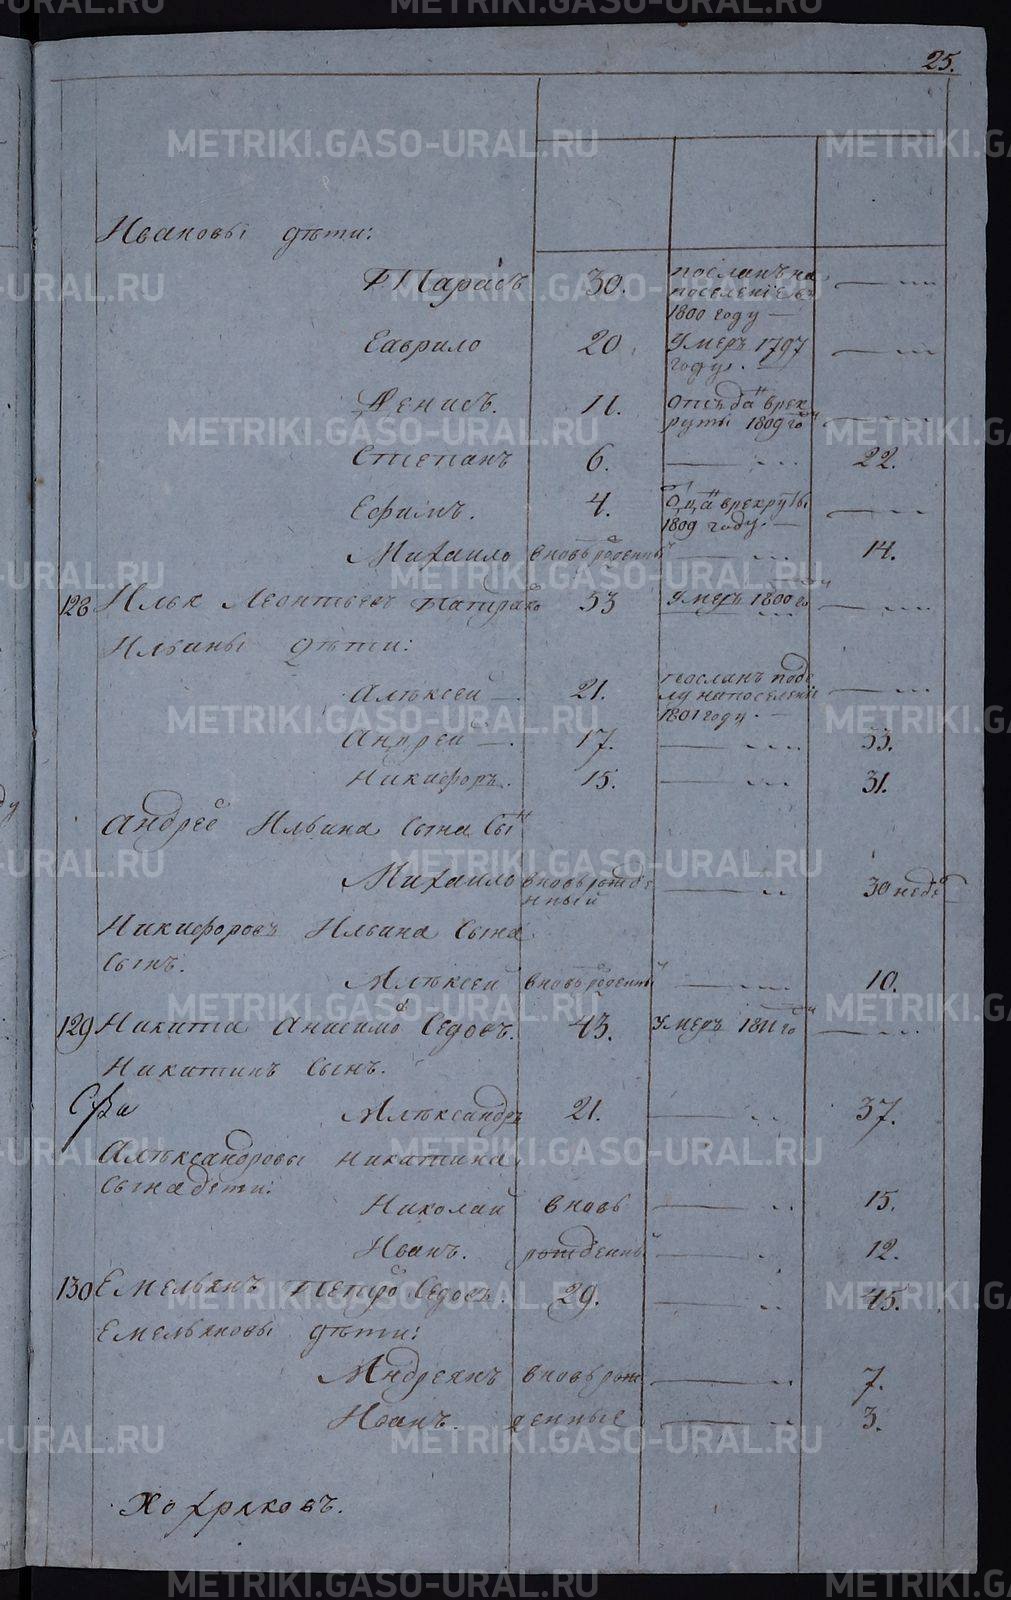 25.
Ивановы дѣти:
Тарасъ 30. посланъ на
поселение въ
1800 году
Гаврило 20 умеръ 1797
году.
Денисъ. 11. отъсъда врек
руты 1809 го
Степанъ 6. 22.
Ефимъ. 4. врекруты
1809 году.
Михаило вновь рожденны 14.
128 Илья Леонтьевъ 53 умеръ 1800 го
Ильины дѣти:
Алѣксей 21. посланъ подѣ
лу на поселение
1801 году
Андрей 17. 33.
Никифоръ. 15. 31.
Андрее Ильина сына сы
Михаило вновь рожде 30 неде
нный
Никифоровъ Ильина сына
сынъ.
Алѣксей вновь рожденны 10.
129 Никита Анисимо Седовъ. 43. умеръ 1811 го
Никитинъ сынъ.
Алѣксандръ 21. 37.
Алѣксандровы никитина
сына дети:
Николай вновь 15.
Иванъ. рожденны 12.
130 Емельянъ петро Седовъ. 29. 45.
Емельяновы дѣти:
Андреянъ вновь рож 7.
Иванъ. денные 3.
Хохряковъ.
METRIKI.GASO-URAL.RU